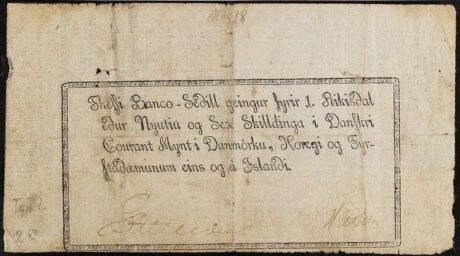 Thessi Banco-Sedill geingur fyrir 1. Rikisdal
edur Nyutia og Sex Skilldinga i Danskri
Courant Mynt i Danmörku, Noregi og Fyr-
stadæmunum eins og á Islandi.